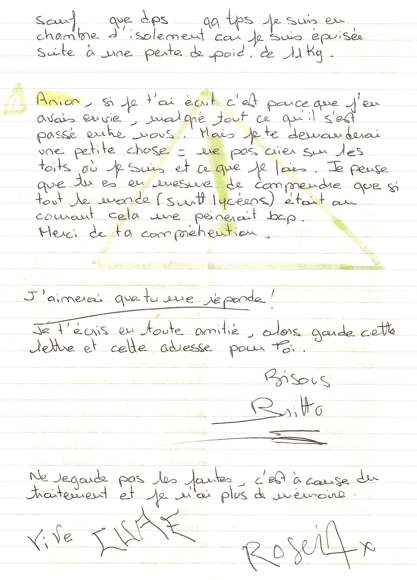 Sauf que dps qq tps je suis en
chambre d'isolement car je suis épuisée
suite à une perte de poid. de 11kg.
Anion, si je t'ai écrit c'est parce que j'en
avais envie, malgré tout ce qu'il s'est
passé entre nous. Mais je te demanderai
une petite chose = ne pas crier sur les
toits où je suis et ce que je fais. Je pense
que tu es en mesure de comprendre que si
tout le monde (surtt lycéens) était au
courant cela me peinerait bcp.
Merci de ta compréhention.
J'aimerai que tu me réponde!
Je t'écris en toute amitié, alors garde cette
lettre et cette adresse pour toi.
Bisous
Ne regarde pas les fautes, c'est à cause du
traitement et je n'ai plus de mémoire.
Vive